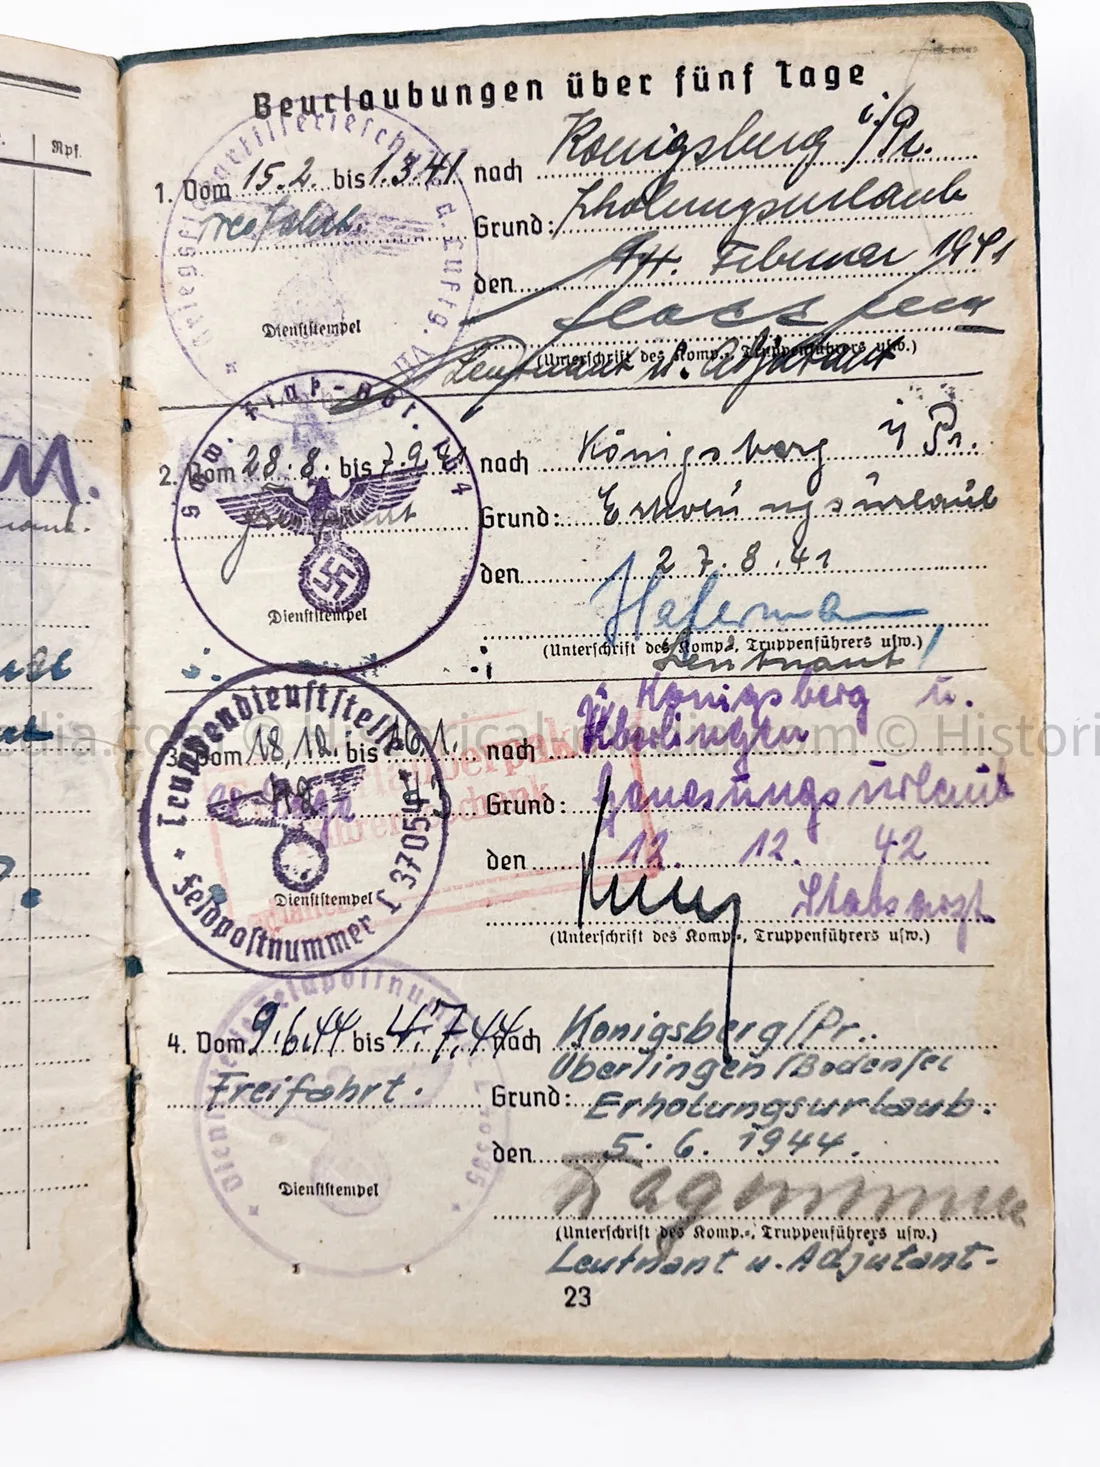 Rpf.
Beurlaubungen über fünf Tage
1. Vom 15.2. bis 1.3.41 nach Königsberg i/Pr.
Freifahrt. Grund: Erholungsurlaub
den 14. Februar 1941
Dienststempel
(Unterschrift des Komp.-, Truppenführers usw.)
Leutnant u. Adjutant
2. Vom 28.8. bis 7.9.41 nach Königsberg i/Pr.
Grund: Erholungsurlaub
den 27.8.41
Haferman
Dienststempel
(Unterschrift des Komp.-, Truppenführers usw.)
Leutnant
3. Vom 18.12. bis 16.1. nach Königsberg u. Überlingen
Grund: Genesungsurlaub
den 12. 12. 42
Stabsarzt
Dienststempel
(Unterschrift des Komp.-, Truppenführers usw.)
Truppendienststelle
Feldpostnummer L 37054
4. Vom 9.6.44 bis 4.7.44 nach Königsberg/Pr.
Überlingen/Bodensee
Freifahrt. Grund: Erholungsurlaub.
den 5. 6. 1944.
Dienststempel
(Unterschrift des Komp.-, Truppenführers usw.)
Leutnant u. Adjutant-
23